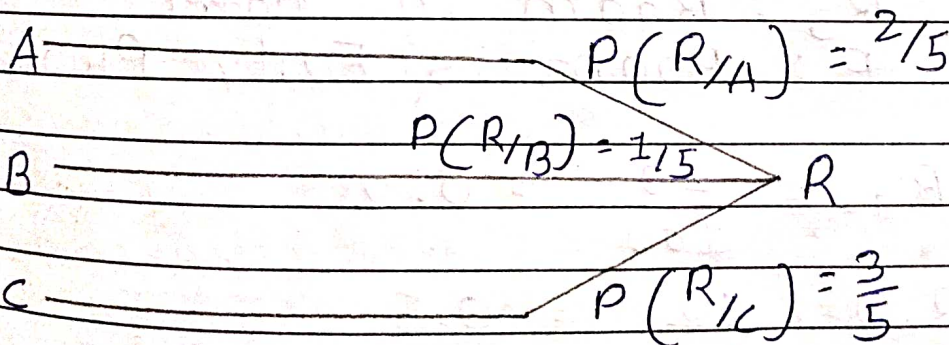 A P(R/A) = 2/5
P(R/B) = 1/5
B R
C P(R/C) = 3/5